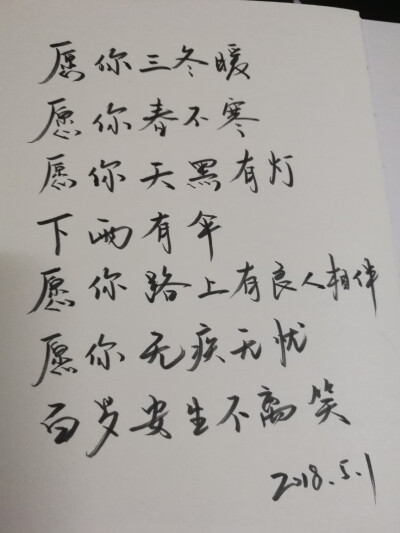 愿你三冬暖
愿你春不寒
愿你天黑有灯
下雨有伞
愿你路上有良人相伴
愿你无疾无忧
百岁安生不离笑
2018.5.1